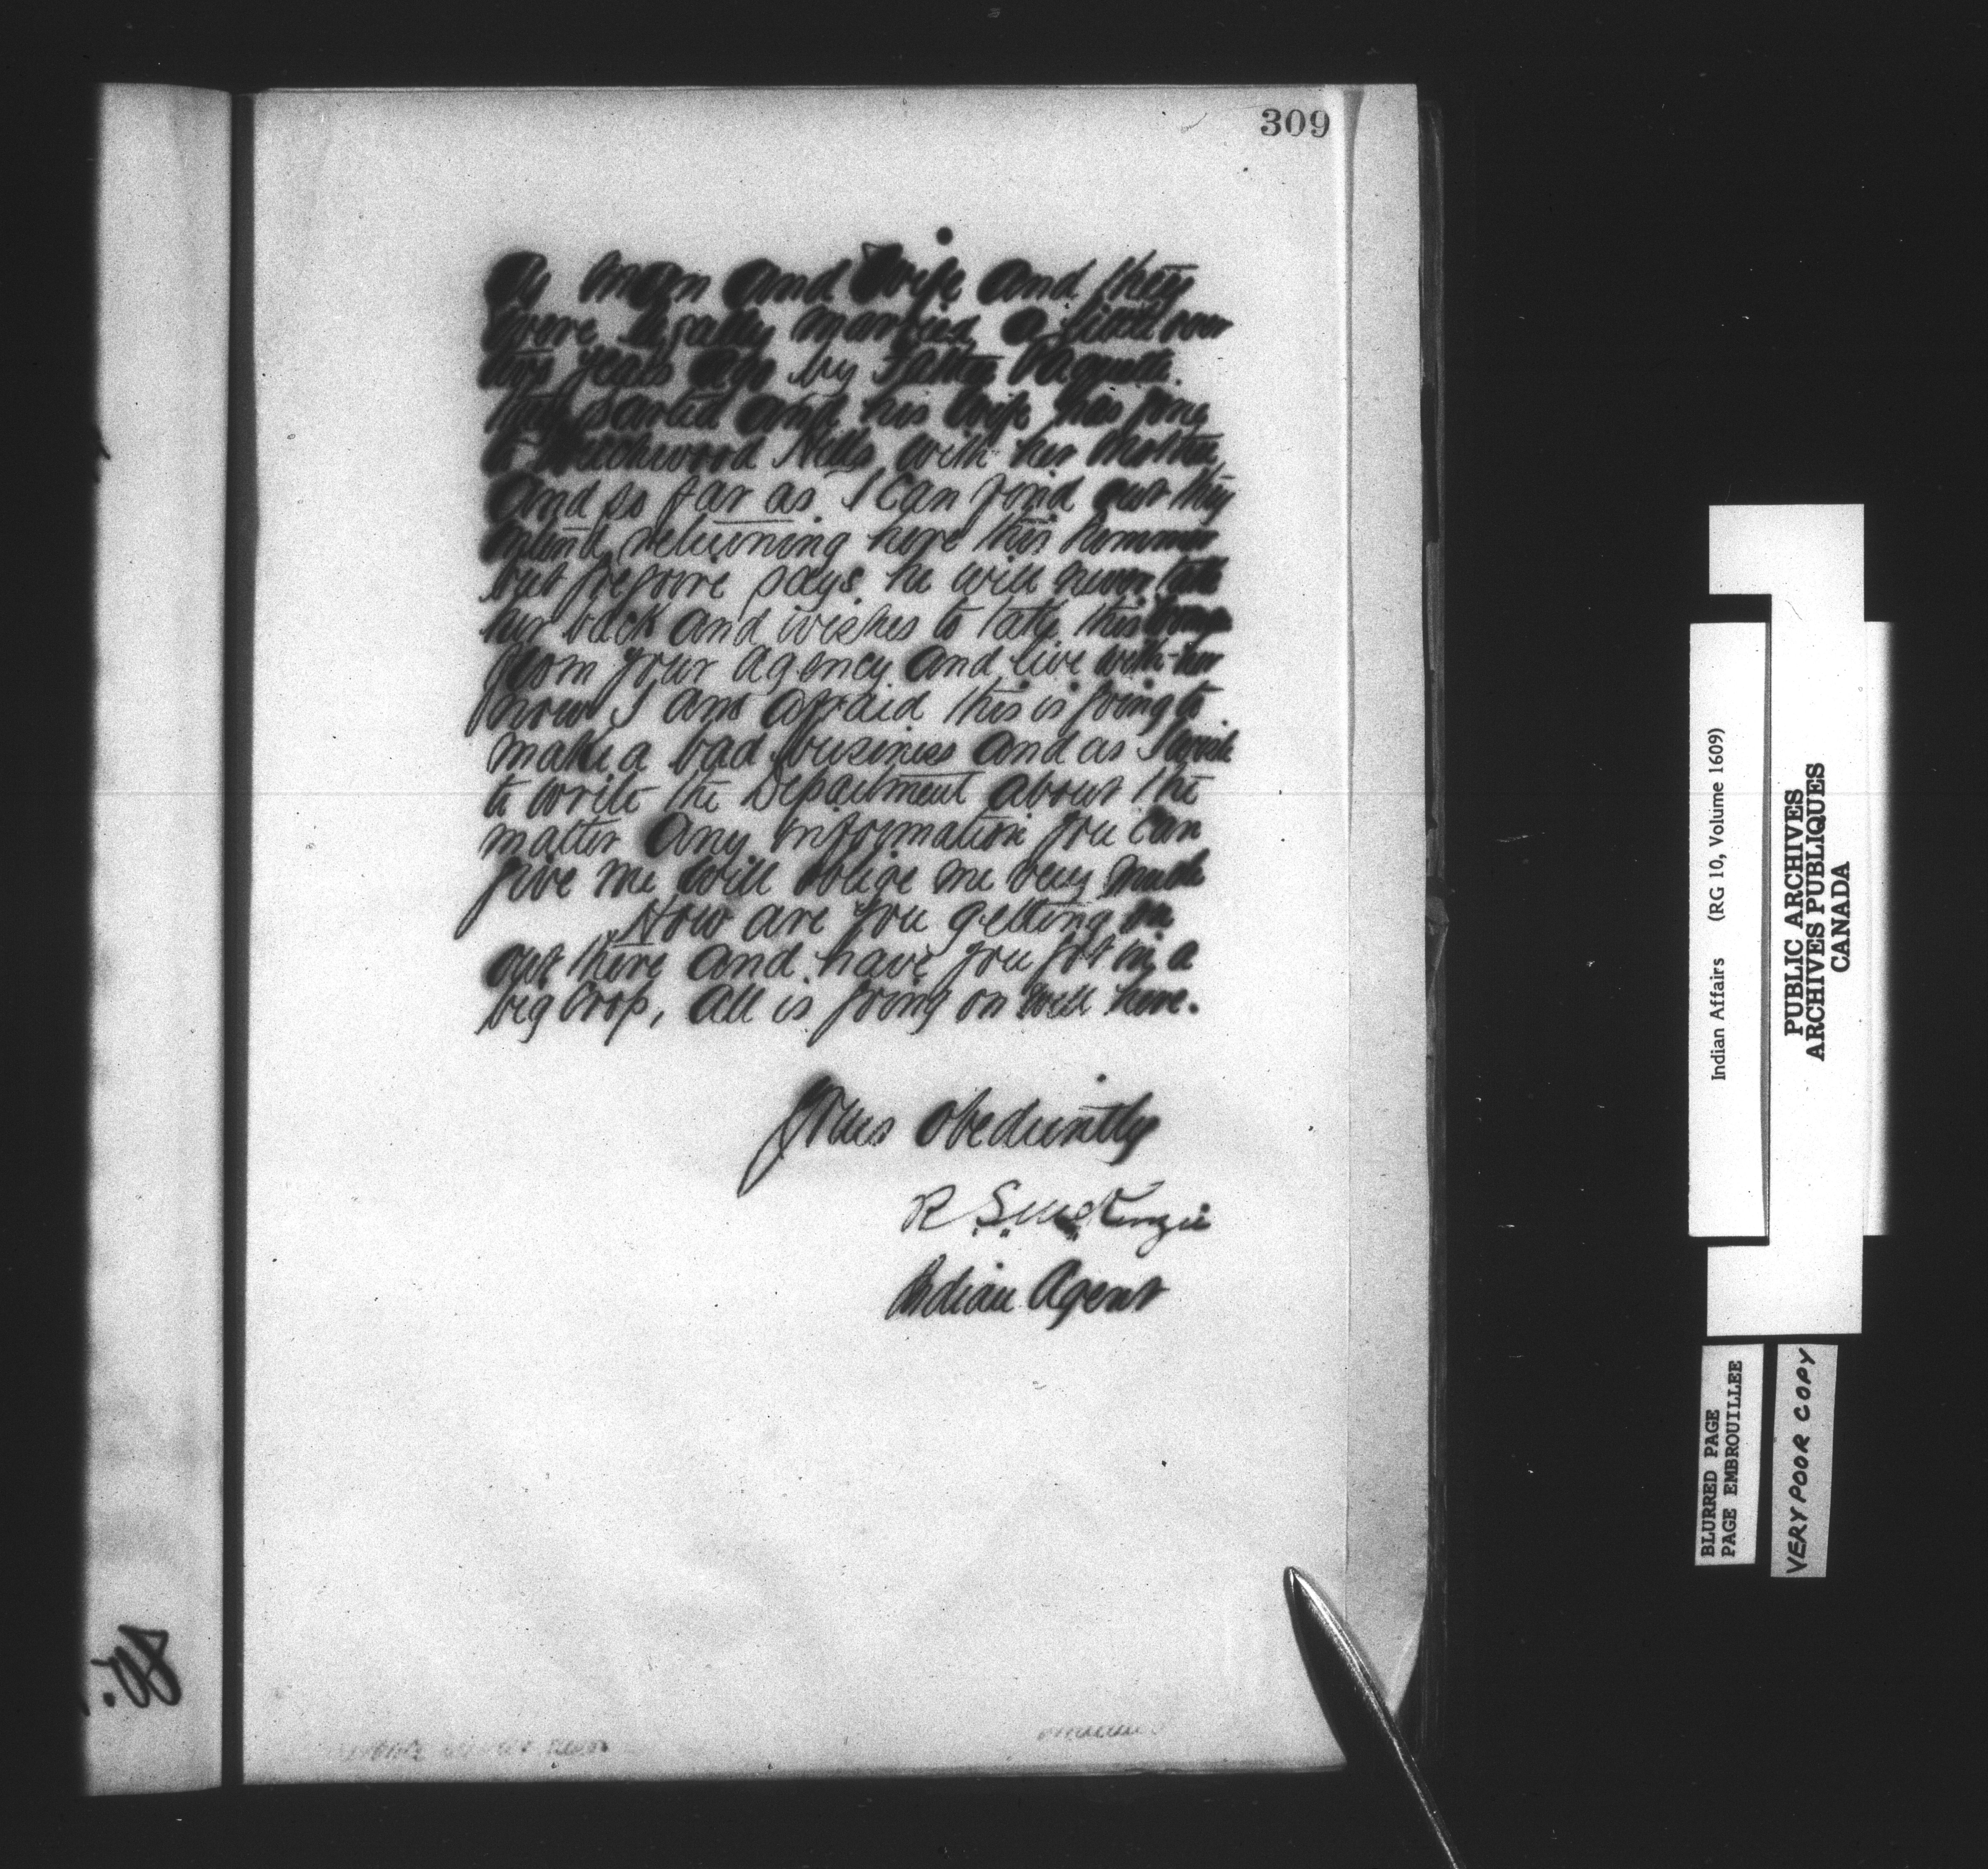 309
As man and wife and they
were legally married a little over
two years ago by Father Paquette.
They parted and his wife has gone
to Touchwood Hills with her mother
and so far as I can find out they
intend returning here this summer
but Gregoire says he will never take
her back and wishes to take this
from your agency and live with her
now I am afraid this is going to
make a bad business and as I wish
to write the Department about the
matter any information you can
give me will oblige me very much
How are you getting on
out there and have you got in a
big crop, all is going on well here.
Yours obediently
R S McKenzie
Indian Agent
Indian Affairs (RG 10, Volume 1609)
PUBLIC ARCHIVES
ARCHIVES PUBLIQUES
CANADA
BLURRED PAGE
PAGE EMBROUILLEE
VERY POOR COPY